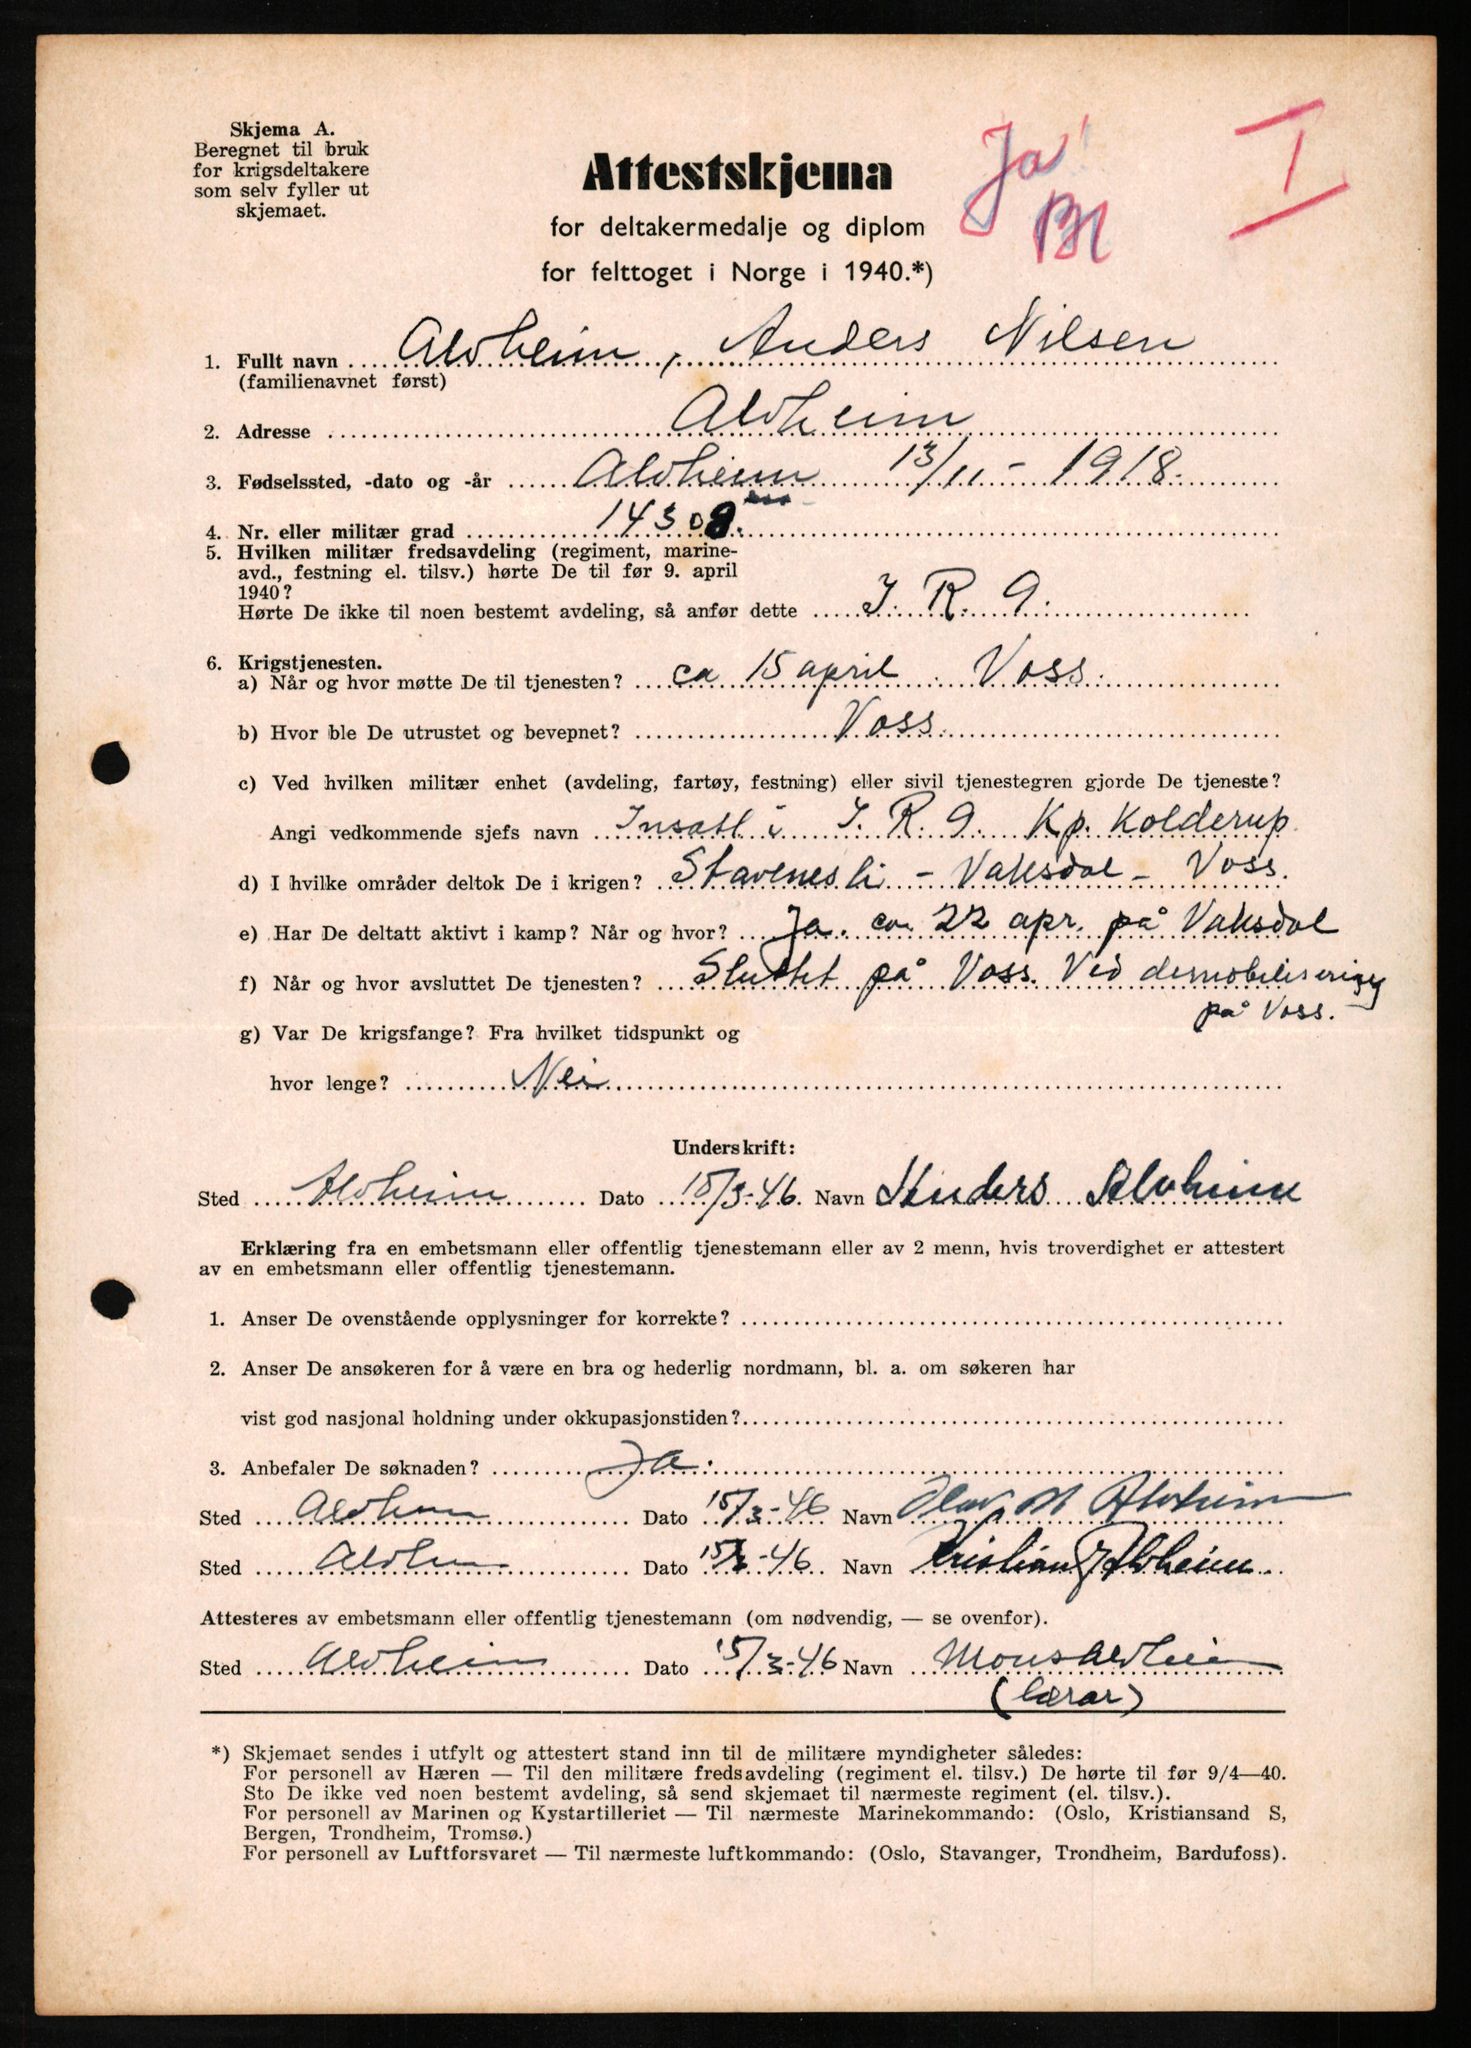 Skjema A.
Beregnet til bruk
for krigsdeltakere
som selv fyller ut
skjemaet.
Ja!
I
Attestskjema
for deltakermedalje og diplom
for felttoget i Norge i 1940.*)
1. Fullt navn Alvheim, Anders Nilsen
(familienavnet først)
2. Adresse Alvheim
3. Fødselssted, -dato og -år Alvheim 13/11 - 1918.
4. Nr. eller militær grad 14308.
5. Hvilken militær fredsavdeling (regiment, marine-
avd., festning el. tilsv.) hørte De til før 9. april
1940?
Hørte De ikke til noen bestemt avdeling, så anfør dette I. R. 9.
6. Krigstjenesten.
a) Når og hvor møtte De til tjenesten? ca 15 april. Voss.
b) Hvor ble De utrustet og bevepnet? Voss.
c) Ved hvilken militær enhet (avdeling, fartøy, festning) eller sivil tjenestegren gjorde De tjeneste?
Angi vedkommende sjefs navn Insatt i I. R. 9. Kp. Kolderup.
d) I hvilke områder deltok De i krigen? Stavenesli - Vaksdal - Voss.
e) Har De deltatt aktivt i kamp? Når og hvor? Ja. ca 22 apr. på Vaksdal
f) Når og hvor avsluttet De tjenesten? Sluttet på Voss. Ved demobilisering
på Voss.
g) Var De krigsfange? Fra hvilket tidspunkt og
hvor lenge? Nei
Underskrift:
Sted Alvheim Dato 15/3-46 Navn Anders Alvheim
Erklæring fra en embetsmann eller offentlig tjenestemann eller av 2 menn, hvis troverdighet er attestert
av en embetsmann eller offentlig tjenestemann.
1. Anser De ovenstående opplysninger for korrekte?
2. Anser De ansøkeren for å være en bra og hederlig nordmann, bl. a. om søkeren har
vist god nasjonal holdning under okkupasjonstiden?
3. Anbefaler De søknaden? Ja.
Sted Alvheim Dato 15/3-46 Navn Olav N Alvheim
Sted Alvheim Dato 15/3-46 Navn Kristian J Alvheim
Attesteres av embetsmann eller offentlig tjenestemann (om nødvendig, — se ovenfor).
Sted Alvheim Dato 15/3-46 Navn Mons Alvheim
(lærar)
*) Skjemaet sendes i utfylt og attestert stand inn til de militære myndigheter således:
For personell av Hæren — Til den militære fredsavdeling (regiment el. tilsv.) De hørte til før 9/4—40.
Sto De ikke ved noen bestemt avdeling, så send skjemaet til nærmeste regiment (el. tilsv.).
For personell av Marinen og Kystartilleriet — Til nærmeste Marinekommando: (Oslo, Kristiansand S,
Bergen, Trondheim, Tromsø.)
For personell av Luftforsvaret — Til nærmeste luftkommando: (Oslo, Stavanger, Trondheim, Bardufoss).